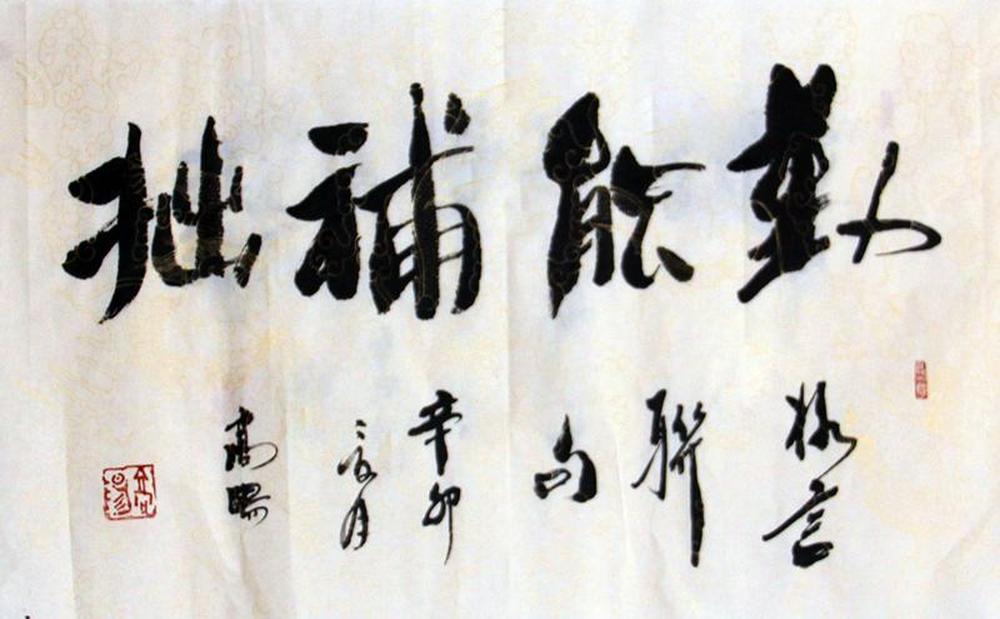 勤能補拙
格言
聯
句
辛卯
二月
高陽